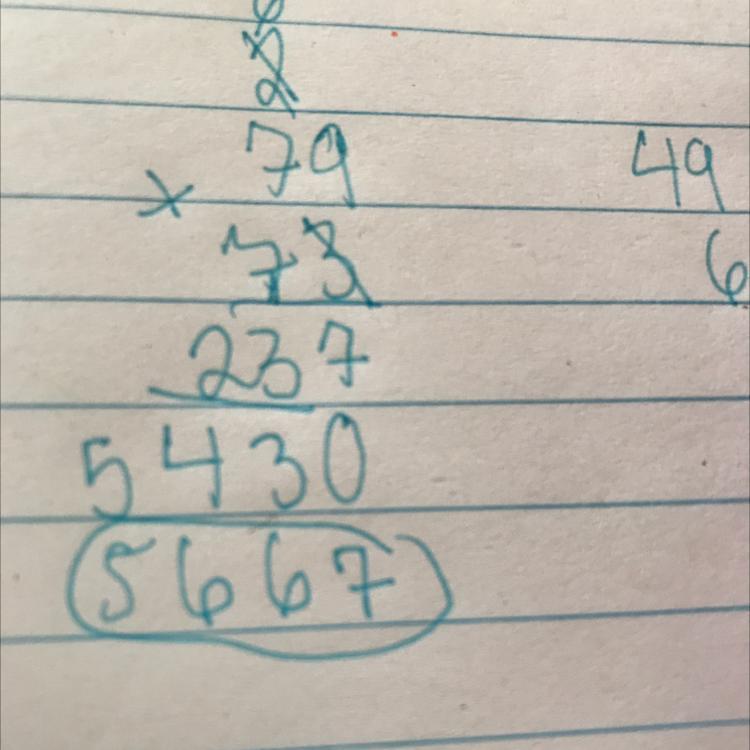 6
2
79 49
× 73 6
237
5430
5667